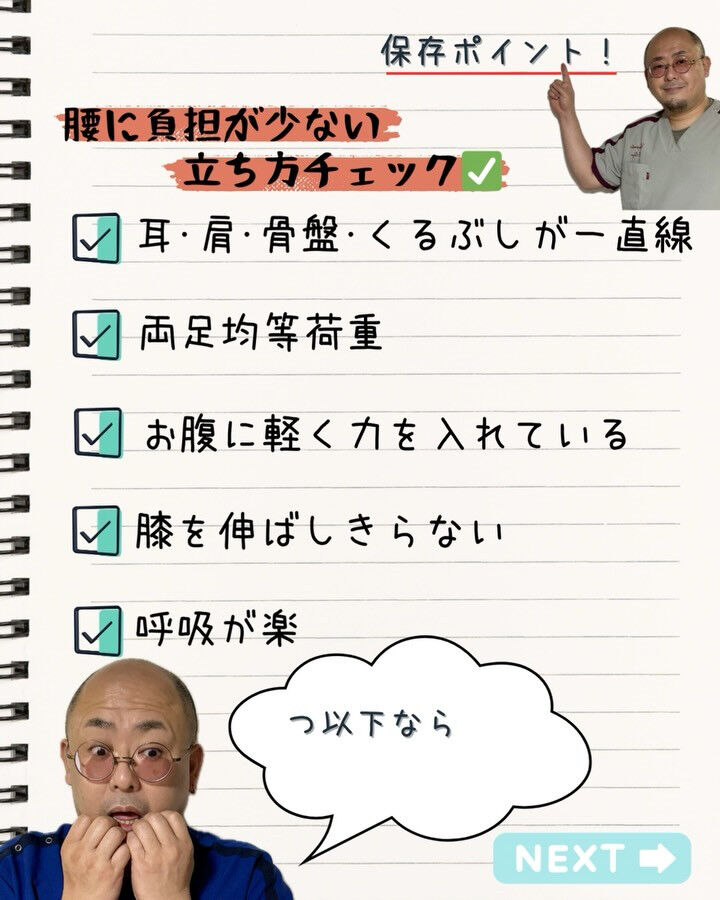 保存ポイント！
腰に負担が少ない
立ち方チェック✅
耳・肩・骨盤・くるぶしが一直線
両足均等荷重
お腹に軽く力を入れている
膝を伸ばしきらない
呼吸が楽
つ以下なら
NEXT